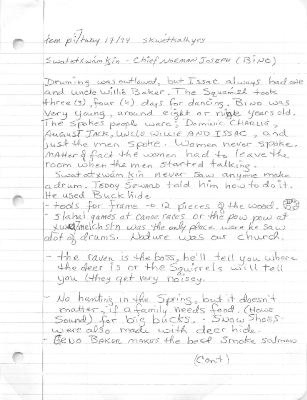 tem pi7tway 19/94 skwetkalhyes
Swatatxwámkin - Chief NORMAN JOSEPH (BINO)
Druming was outlawed, but ISSAC always had one
and uncle Willie BAKER. The Squamish took
three (3) four (4) days for dancing. BINO was
very young, around eight or night years old.
The spokes people were; Dominic CHARLIE,
AUGUST JACK, UNCLE WILLIE AND ISSAC, and
just the men spoke. Women never spoke.
MATTER of fact the women had to leave the
room when the men started talking.
Swatatxwámkin never saw anyone make
a drum. TEDDY SEWARD told him how to do it.
He used Buck hide
- tools for frame - 12 pieces of the wood.
- Slahal games at canoe races or the pow pow at
was the only place were he saw
alot of drums. Nature was our church.
- the raven is the boss, he'll tell you where
the deer is or the Squirrels will tell
you (they get very noisey.
- No hunting in the Spring, but it doesn't
matter, if a family needs food. (Howe
Sound) for big bucks. - Snow shoes
were also made with deer hide.
- BINO BAKER makes the best smoke salmon
(Con't)